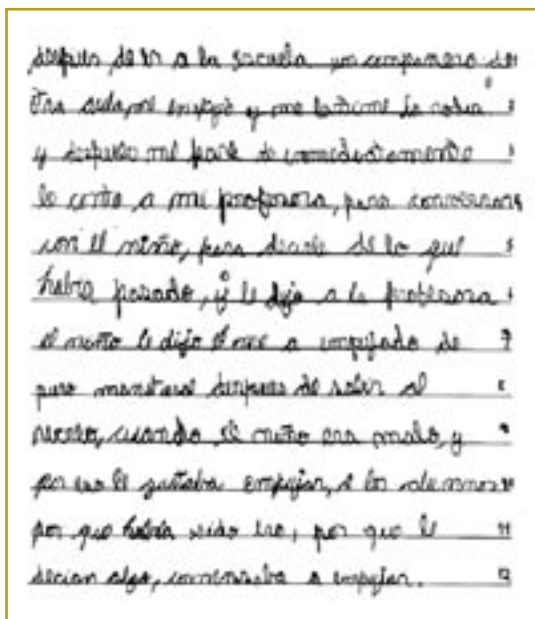 despues de ir a la escuela un compañero de
otra sala, me empujó y me lastimé la rodia 2
y después me pare te comedastamente 3
le conto a mi profesora, para conversar 4
con el niño, para decirle de lo que 5
había pasado, y le dijo a la profesora 6
el niño le dijo él me a empujado de 7
puro mañatural despues de salir al 8
recreo, cuando el niño era malo, y 9
por eso le gustaba empujar, a los alumnos 10
por que había sido eso, por que le 11
decian algo, comensaba a empujar. 12